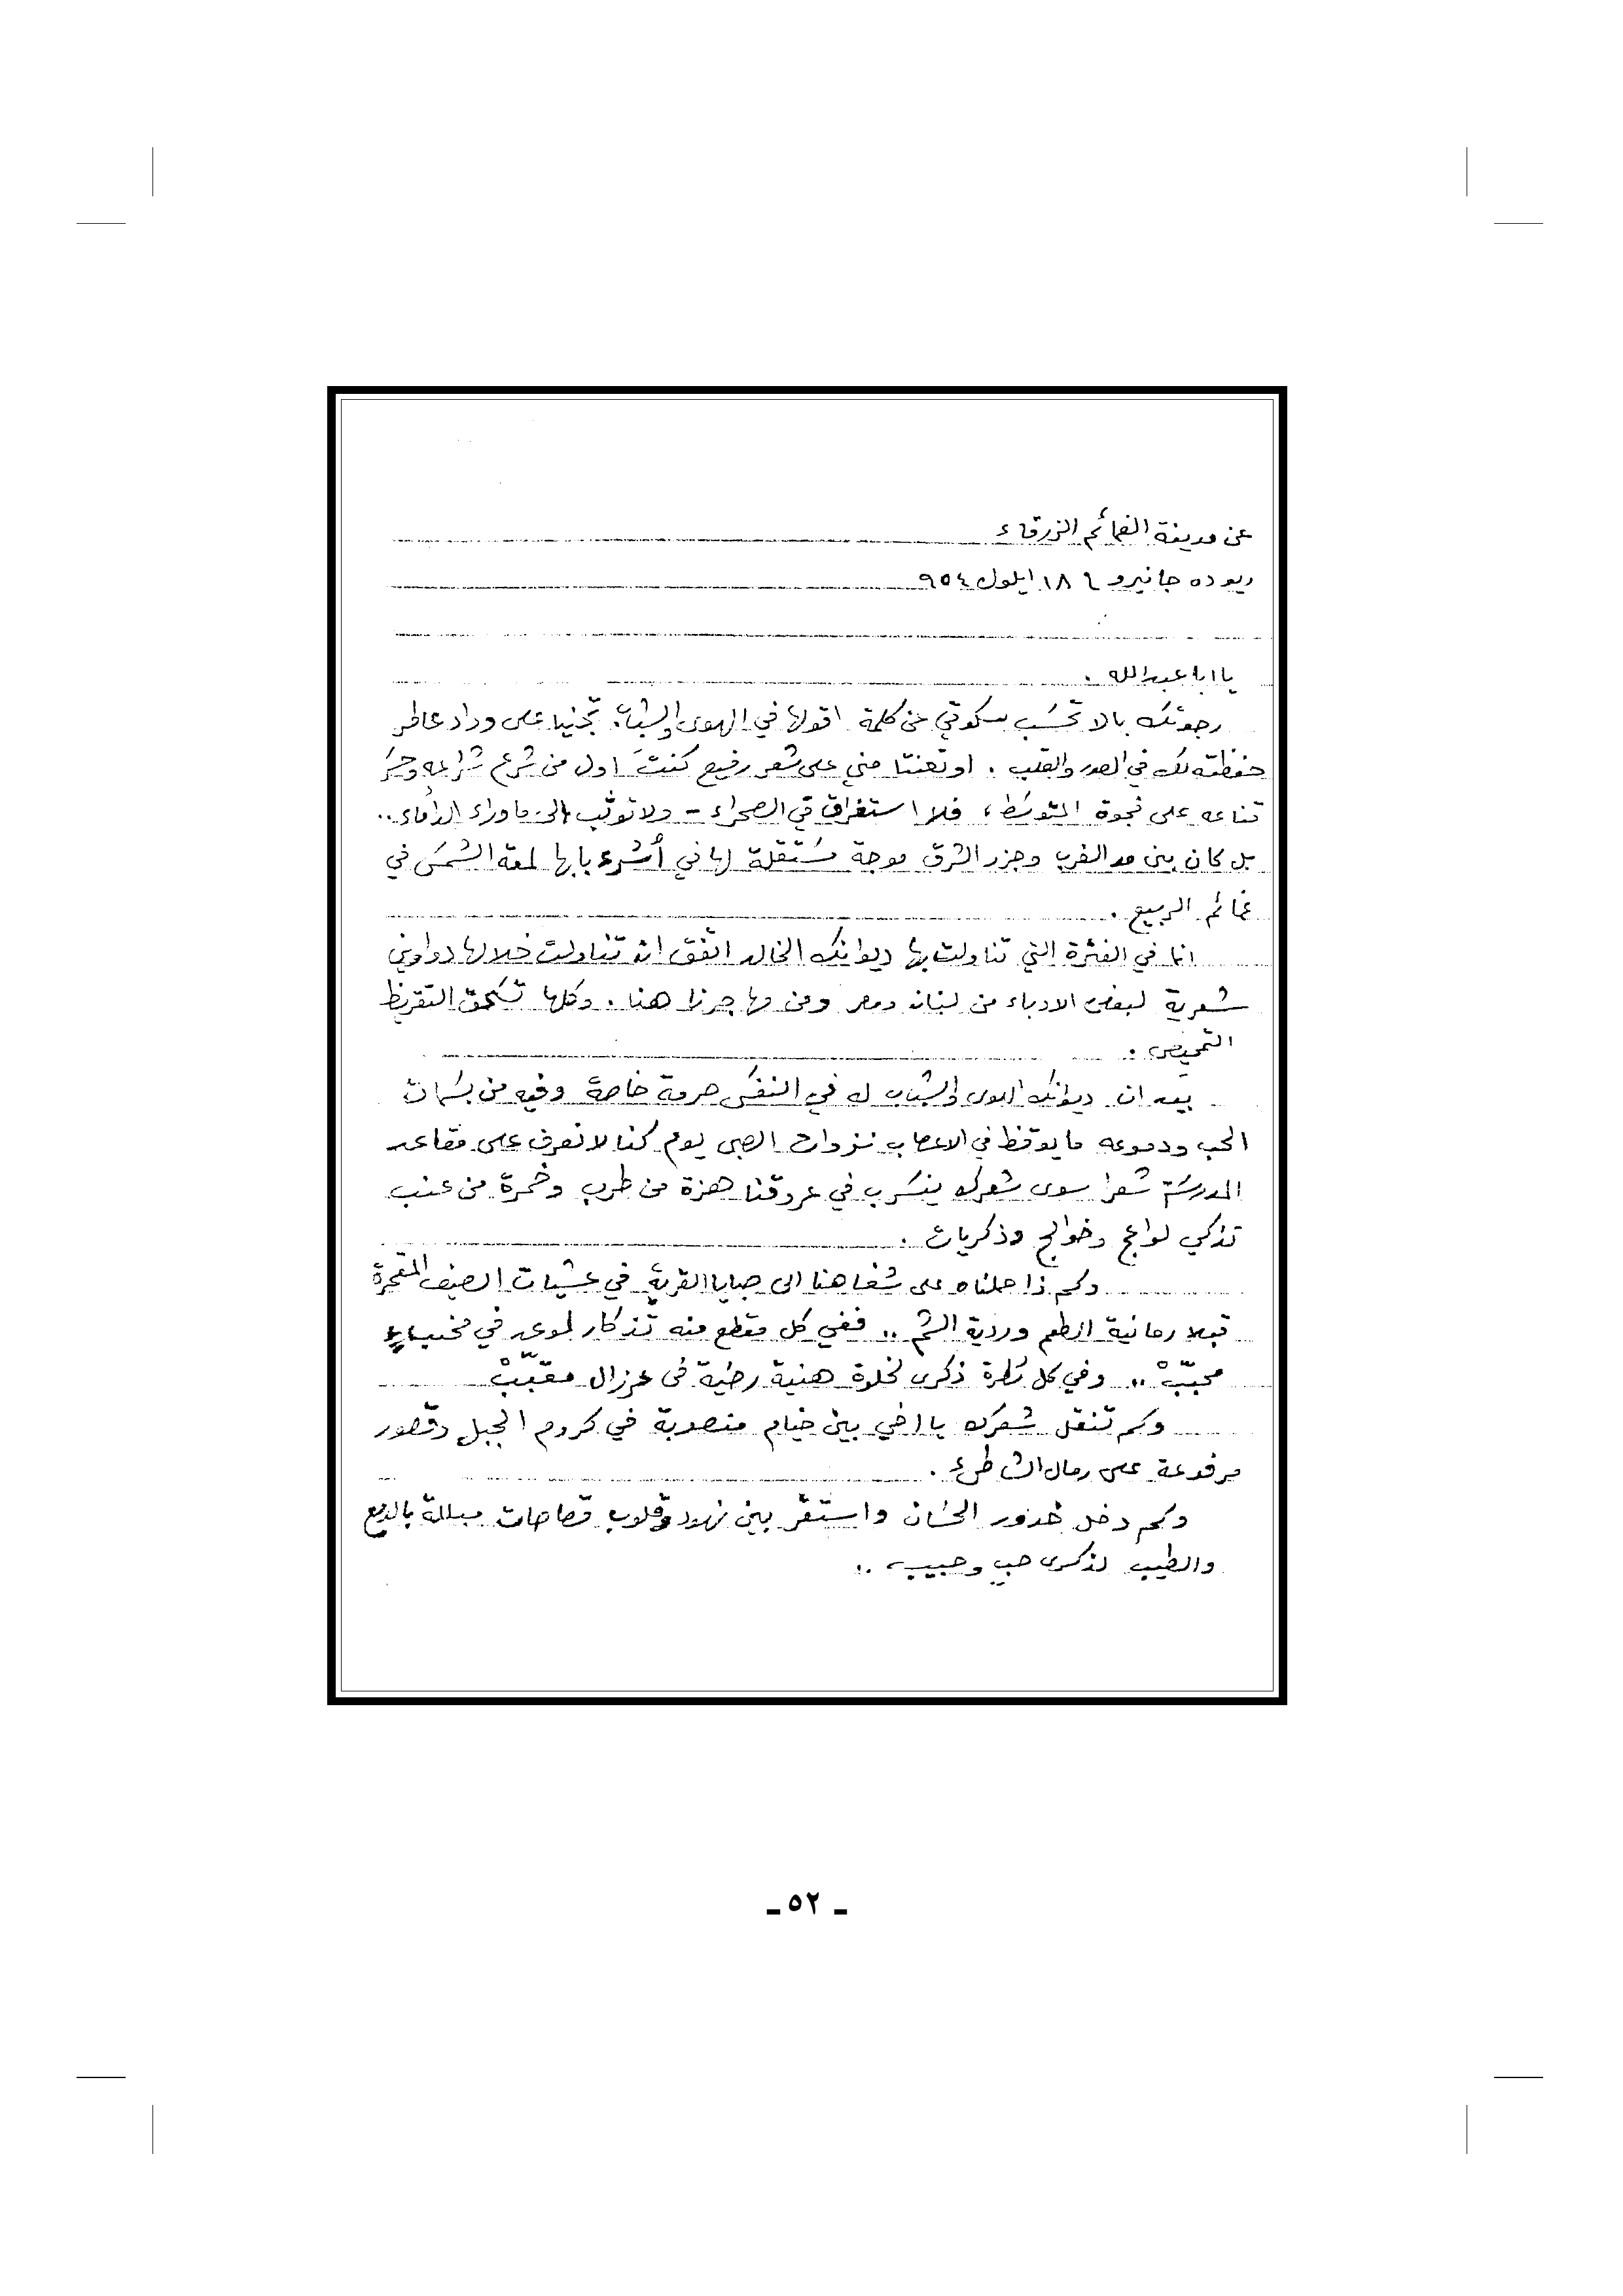 عن مدينة الغمائم الزرقاء
ريو ده جانيرو ١٨ ايلول ٩٥٤
يا ابا عبدالله .
رجوتك بالا تحسَب سكوتي عن كلمة اقولها في الهوى والشباب تجنيا على وداد عاطر
حفظته لك في الصدر والقلب . او تعنتا مني على شعر رفيع كنتَ اول من شرع شراعه
على فجوة التوسّط ، فلا استغراق في الصحراء - ولا توثّب الى ما وراء الدأماء ..
بل كان بين مد الغرب وجزر الشرق موجة مُستقلة لها في أشرعبابها لمعة الشمس في
غمائم الربيع .
انما في الفترة التي تناولت بها ديوانك الخالد اتّفق ان تناولت خلالها دواوين
شعرية لبعض الادباء من لبنان ومصر ومن مهاجرنا هنا . وكلها تستحق التقريظ
التمحيص .
بيد ان ديوانك الهوى والشباب له في النفس حرمة خاصة وفيه من بسمات
الحب ودموعه ما يوقظ في الاعصاب نزوات الصبى يوم كنا لا نعرف على مقاعد
المدرسة شعرا سوى شعرك ينسَرب في عروقنا هزة من طرب وخمرة من عنب
تذكي لواعج وخوالج وذكريات .
وكم ذا حلناه على شفاهنا الى صبايا القرية في عشيات الصيف المقمرة
قبلا رمانية الطعم وردية الشم .. ففي كل مقطع منه تذكار لموعد في مخبإٍ
محبّبْ .. وفي كل نظرة ذكرى لخلوة هنية رضيّة في عرزال مقبّبْ
وكم تنقل شعرك يا اخي بين خيام منصوبة في كروم الجبل وقصور
مرفوعة على رمال الشاطئ .
وكم دخل خدور الحسَان واستقرّ بين نهود وقلوب قصاصات مبللة بالدمع
والطيب لذكرى حب وحبيب ..
ـ ٥٢ ـ